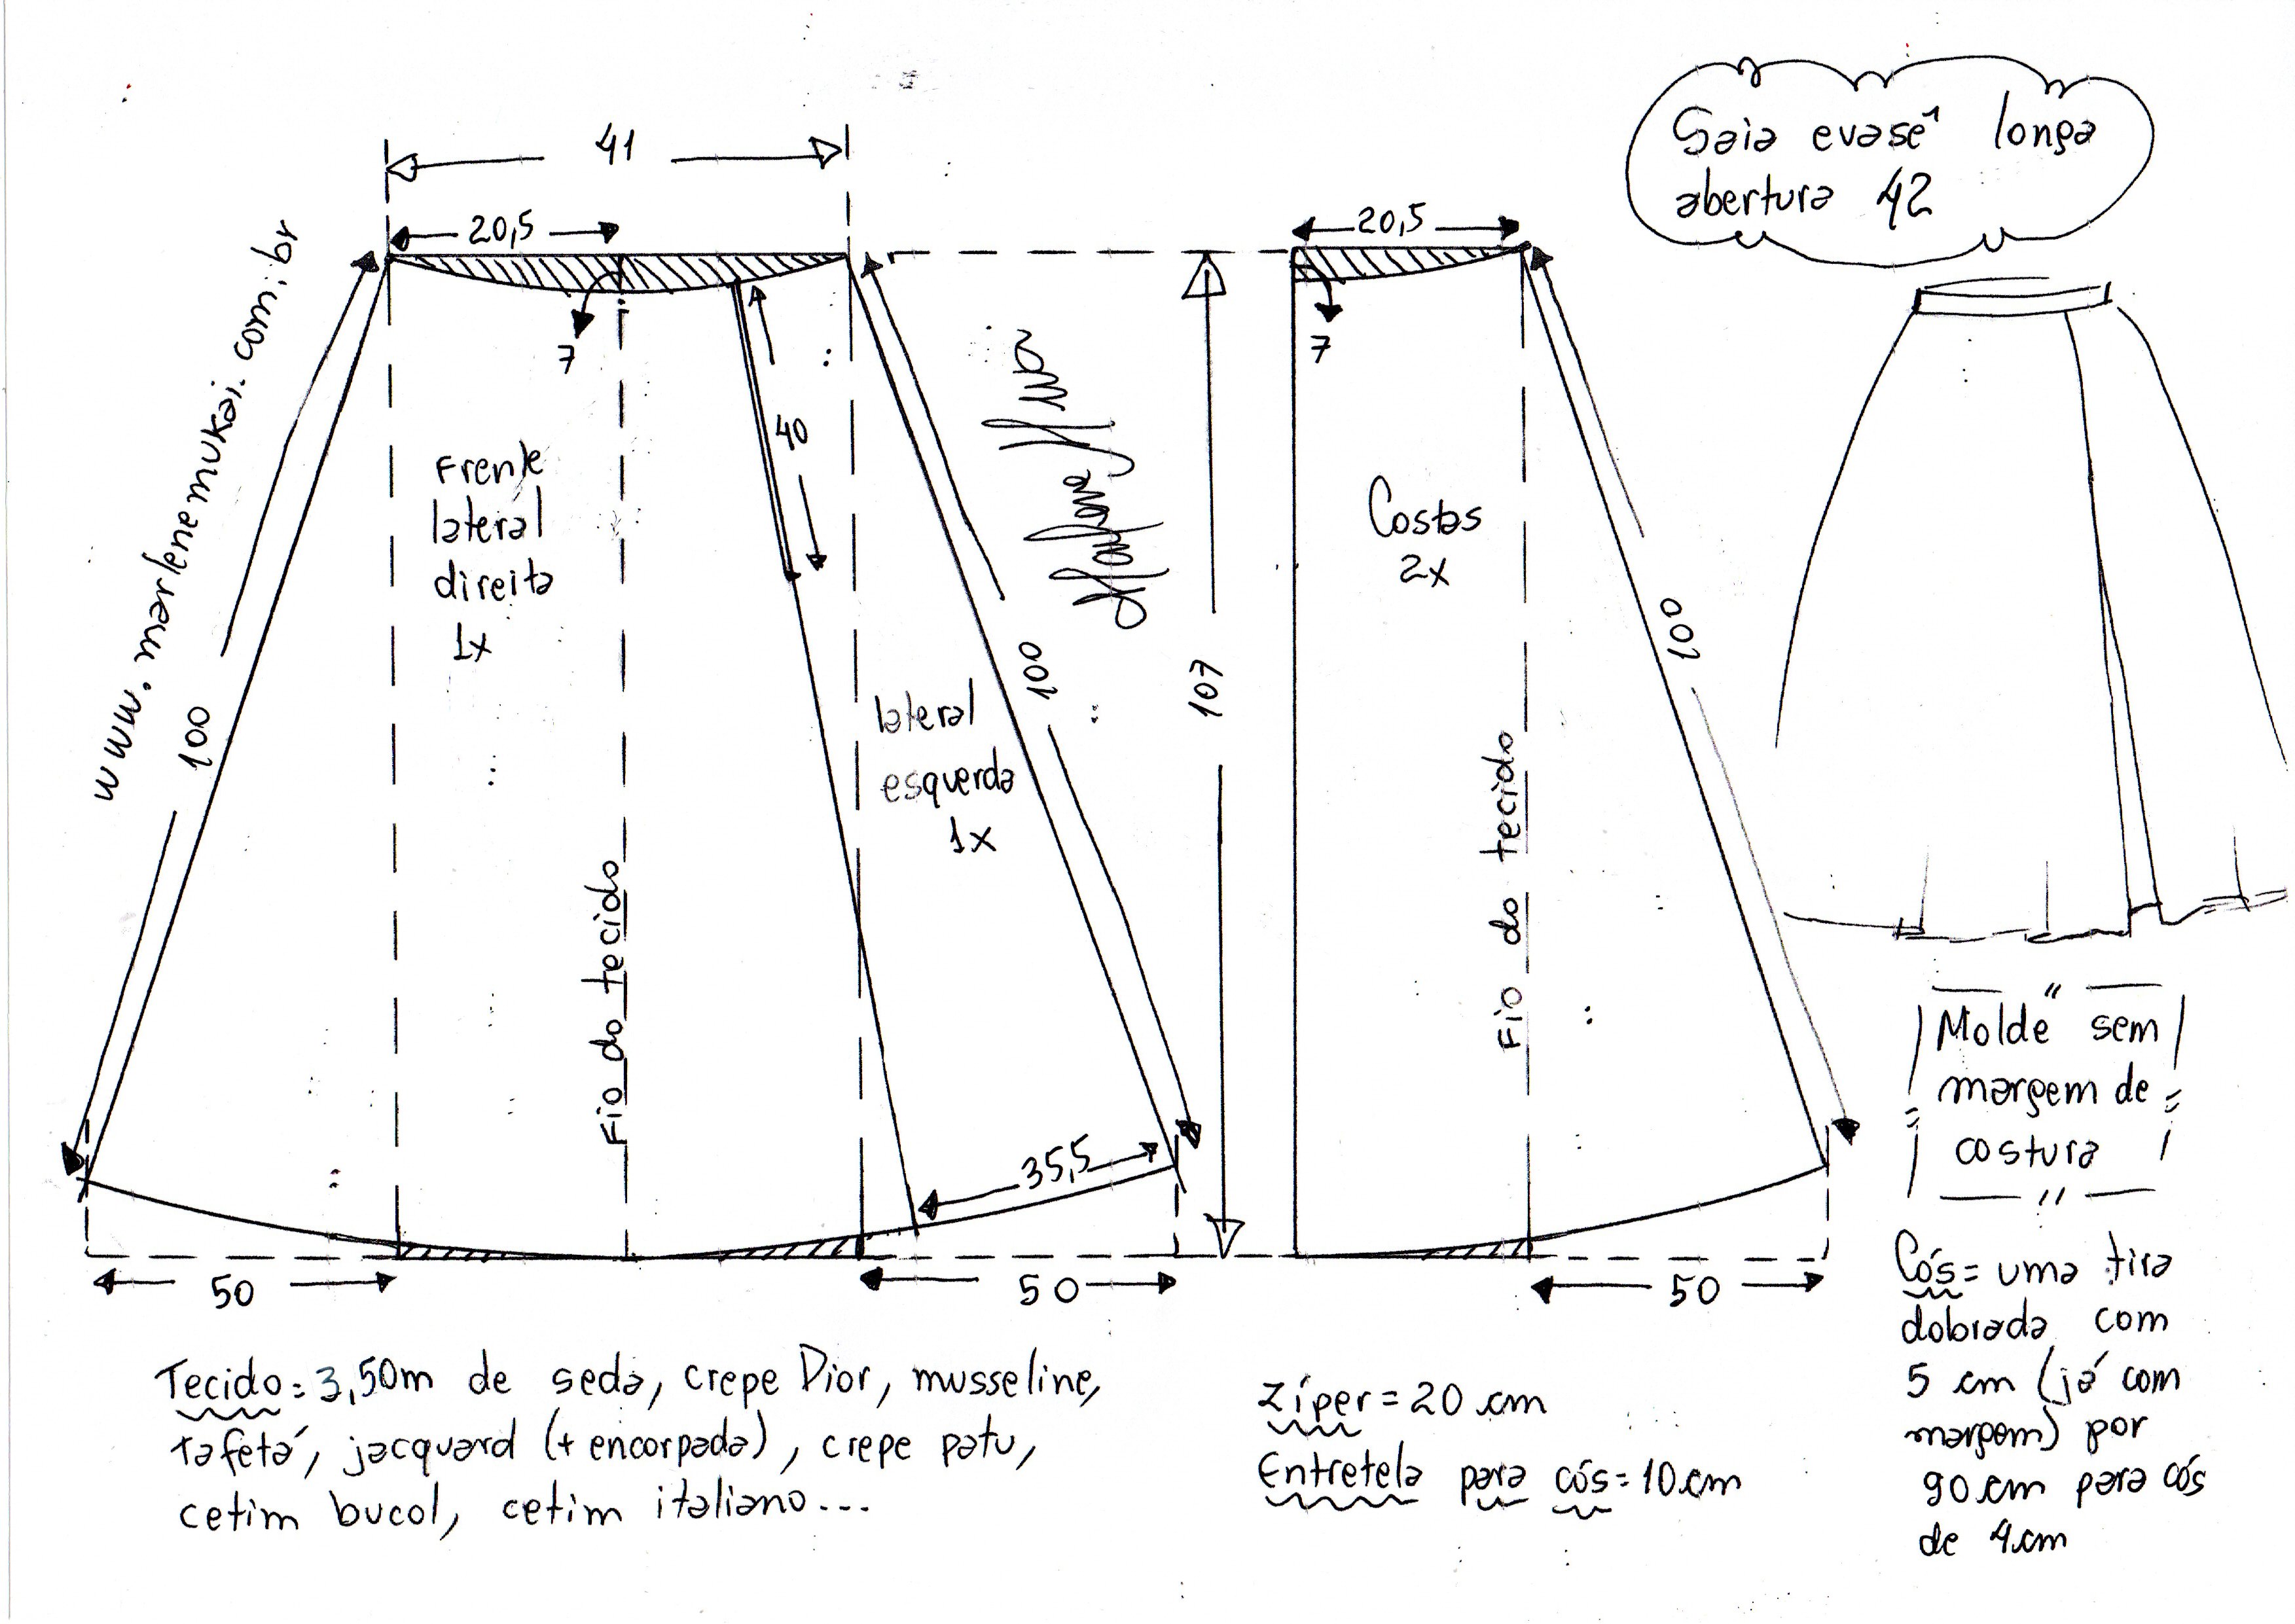 Saia evasê longa
abertura 42
41
20,5
7
www.marlenemukai.com.br
100
Frente
lateral
direita
1x
Fio do tecido
40
lateral
esquerda
1x
100
35,5
50
50
107
20,5
7
Costas
2x
Fio do tecido
100
50
"Molde" sem
margem de
costura
Cós= uma tira
dobrada com
5 cm (já com
margem) por
90 cm para cós
de 4 cm
Tecido= 3,50m de seda, crepe Dior, musseline,
tafetá, jacquard (+ encorpada), crepe patu,
cetim bucol, cetim italiano...
Zíper= 20 cm
Entretela para cós= 10 cm